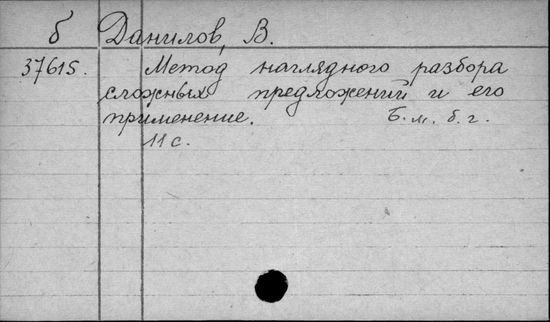 б Данилов, В.
37615. Метод наглядного разбора
сложных предложений и его
применение. Б. м. б. г.
11 с.